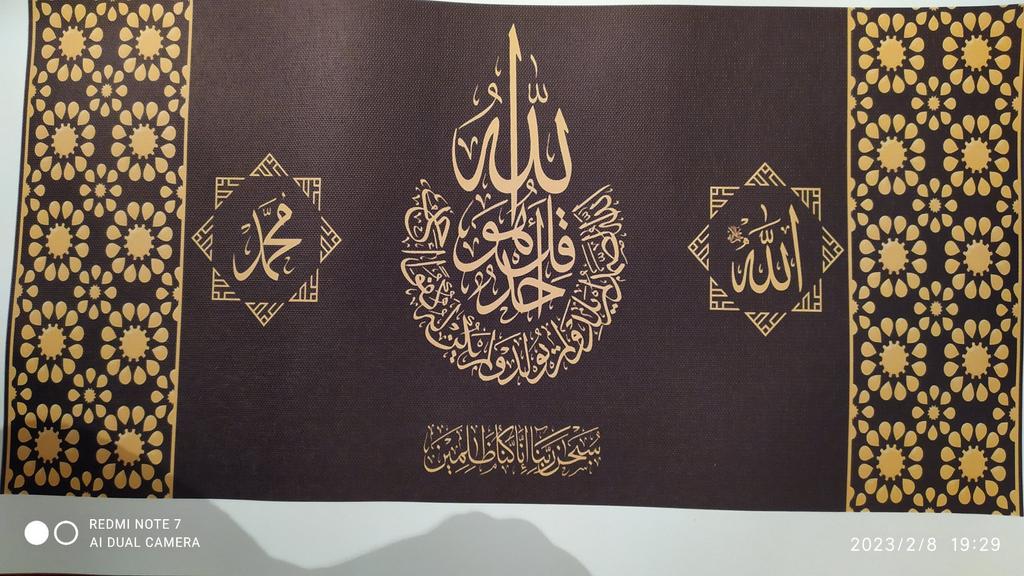 الله
قل هو الله أحد
الله الصمد لم يلد ولم يولد ولم يكن له كفوا أحد
محمد
سبحن ربنا إنا كنا ظالمين
REDMI NOTE 7
AI DUAL CAMERA
2023/2/8 19:29